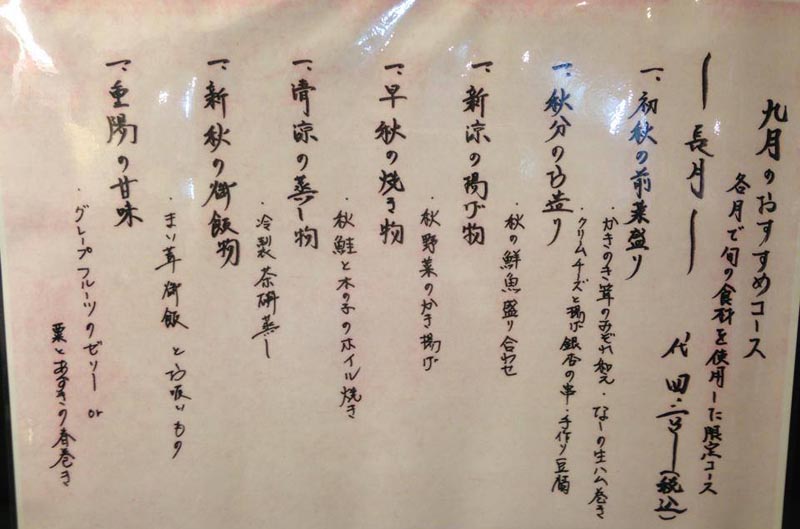 九月のおすすめコース
各月で旬の食材を使用した限定コース
― 長月 ―
代 四、〇〇〇(税込)
一、初秋の前菜盛り
・かきのき茸のみぞれ和え・なしの生ハム巻き
・クリームチーズと揚げ銀杏の串・手作り豆腐
一、秋分のお造り
・秋の鮮魚盛り合わせ
一、新涼の揚げ物
・秋野菜のかき揚げ
一、早秋の焼き物
・秋鮭と木の子のホイル焼き
一、清涼の蒸し物
・冷製茶碗蒸し
一、新秋の御飯物
・まい茸御飯 とお吸いもの
一、重陽の甘味
・グレープフルーツのゼリー or
栗とあずきの春巻き